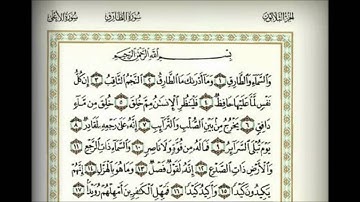 الجزء الثلاثون سورة الطارق سورة الأعلى
بِسْمِ اللَّهِ الرَّحْمَٰنِ الرَّحِيمِ
وَالسَّمَاءِ وَالطَّارِقِ ١ وَمَا أَدْرَاكَ مَا الطَّارِقُ ٢ النَّجْمُ الثَّاقِبُ ٣ إِن كُلُّ
نَفْسٍ لَّمَّا عَلَيْهَا حَافِظٌ ٤ فَلْيَنظُرِ الْإِنسَانُ مِمَّ خُلِقَ ٥ خُلِقَ مِن مَّاءٍ
دَافِقٍ ٦ يَخْرُجُ مِن بَيْنِ الصُّلْبِ وَالتَّرَائِبِ ٧ إِنَّهُ عَلَىٰ رَجْعِهِ لَقَادِرٌ ٨
يَوْمَ تُبْلَى السَّرَائِرُ ٩ فَمَا لَهُ مِن قُوَّةٍ وَلَا نَاصِرٍ ١٠ وَالسَّمَاءِ ذَاتِ الرَّجْعِ ١١
وَالْأَرْضِ ذَاتِ الصَّدْعِ ١٢ إِنَّهُ لَقَوْلٌ فَصْلٌ ١٣ وَمَا هُوَ بِالْهَزْلِ ١٤ إِنَّهُمْ
يَكِيدُونَ كَيْدًا ١٥ وَأَكِيدُ كَيْدًا ١٦ فَمَهِّلِ الْكَافِرِينَ أَمْهِلْهُمْ رُوَيْدًا ١٧